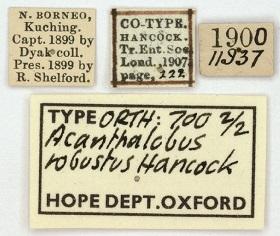 N. BORNEO,
Kuching.
Capt. 1899 by
Dyak coll.
Pres. 1899 by
R. Shelford.
CO-TYPE.
HANCOCK.
Tr. Ent. Soc
Lond., 1907.
page, 222
1900
11937
TYPE ORTH: 700 2/2
Acanthalobus
robustus Hancock
HOPE DEPT. OXFORD